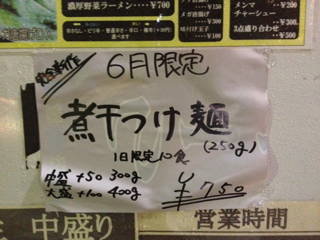 濃厚野菜ラーメン‥‥¥700
メガ唐揚げ
味付け玉子
¥100
メンマ
チャーシュー
3点盛り合わせ
¥300
¥500
完全新作
6月限定
煮干つけ麺
(250g)
1日限定10食
中盛 +50 300g
大盛 +100 400g
¥750
中盛り
営業時間